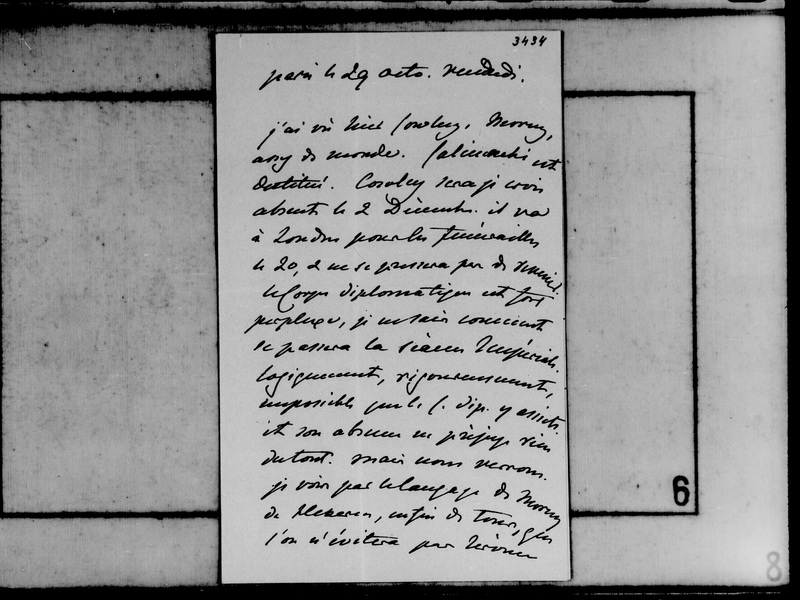 3434
paris le 29 octo. vendredi.
j'ai vu hier Cowley, Morny,
assez de monde.
destitué. Cowley sera je crois
absent le 2 Décembre. il va
à Londres pour les funérailles
le 20, & ne se pressera pas de revenir.
le Corps diplomatique est fort
perplexe, je ne sais comment
se passera la séance Impériale.
logiquement, rigoureusement,
impossible que le C. dip. y assiste.
et son absence ne préjuge rien
du tout. mais nous verrons.
je vois par le langage de Morny
de Heeckeren, enfin de tous, que
l'on n'évitera pas Jérôme
6
8